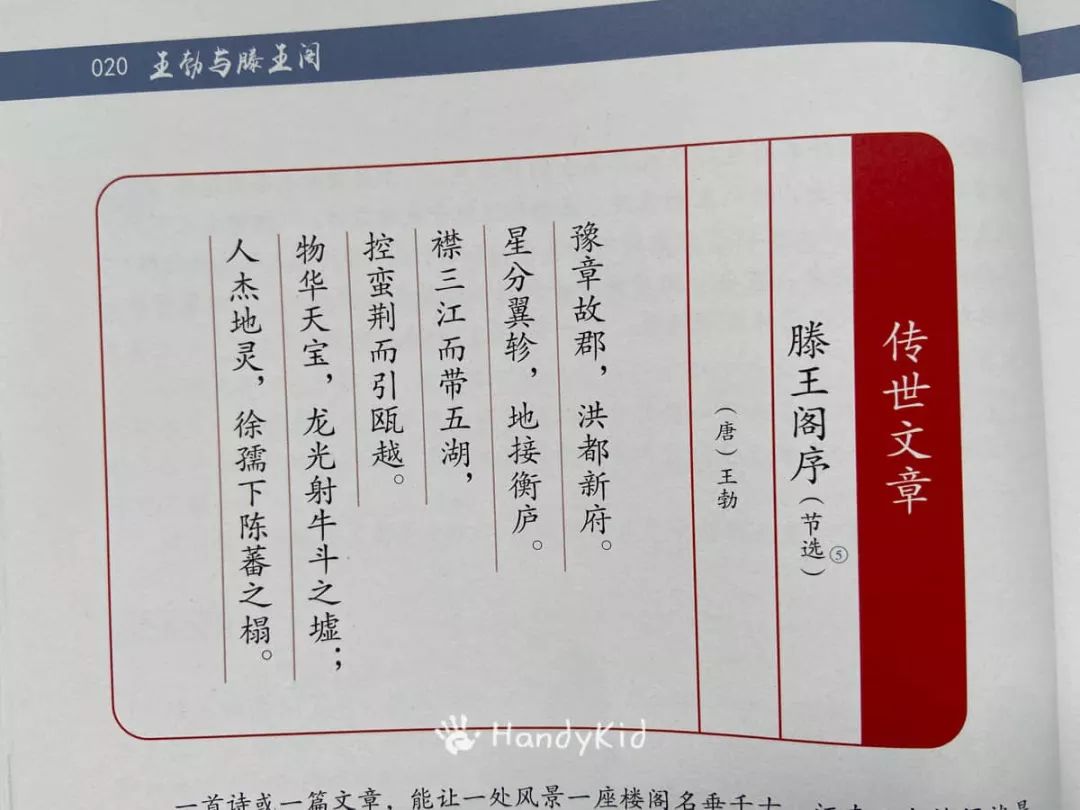 020 王勃与滕王阁
传世文章
滕王阁序（节选）⑤
（唐）王勃
豫章故郡，洪都新府。
星分翼轸，地接衡庐。
襟三江而带五湖，
控蛮荆而引瓯越。
物华天宝，龙光射牛斗之墟；
人杰地灵，徐孺下陈蕃之榻。
HandyKid
一首诗或一篇文章，能让一处风景一座楼阁名垂千古